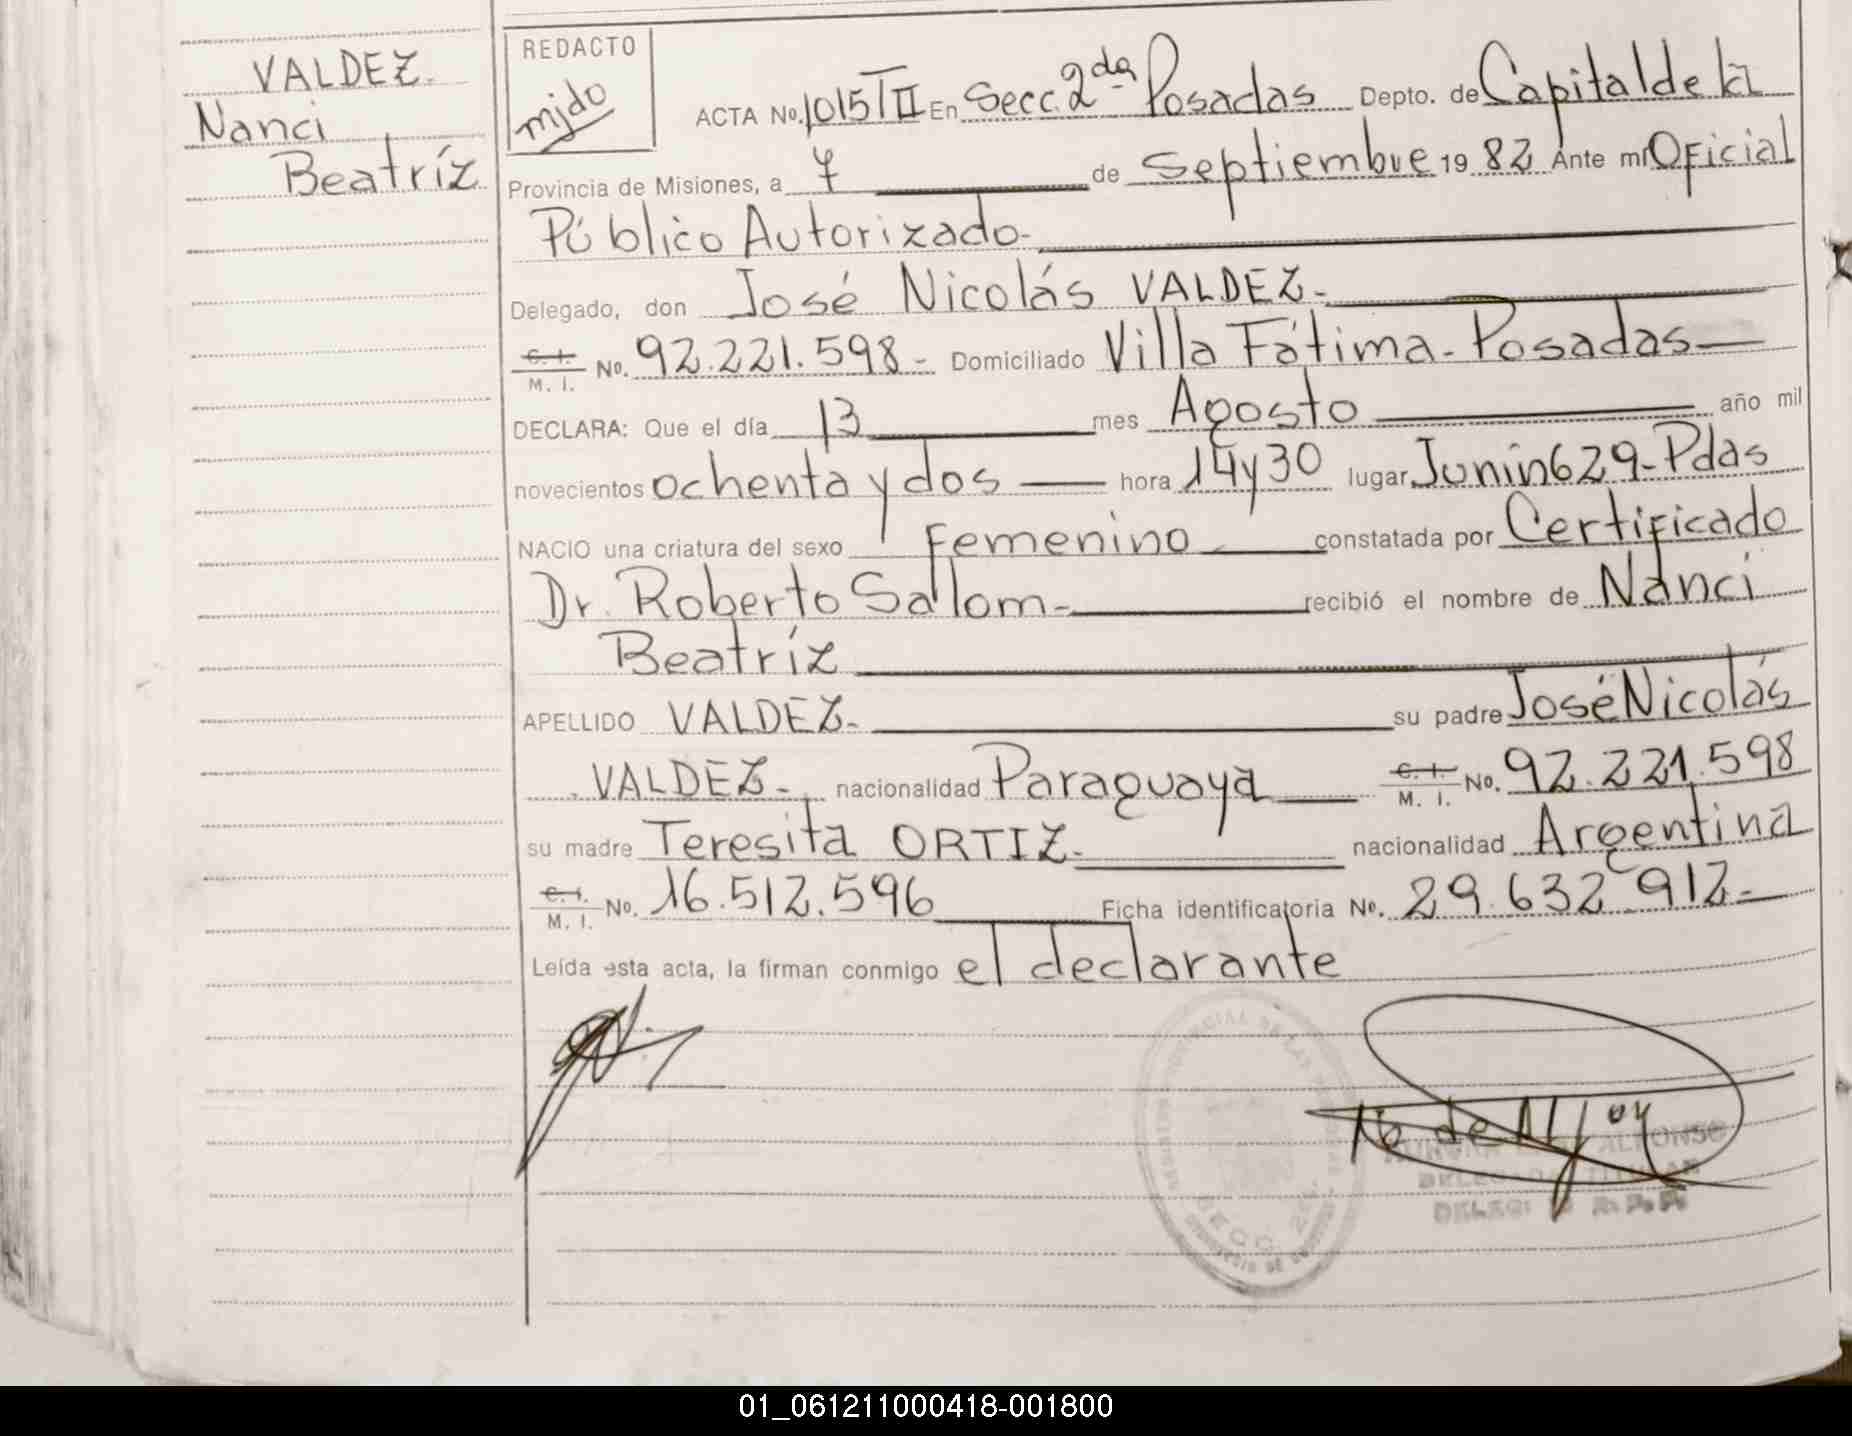 VALDEZ.
Nanci
Beatríz
REDACTO
mjdo
ACTA No. 1015 TII En Secc. 2da Posadas Depto. de Capital de la
Provincia de Misiones, a 7 de Septiembre 19 82 Ante mí Oficial
Público Autorizado-
Delegado, don José Nicolás VALDEZ-
C. I. M. I. No. 92.221.598- Domiciliado Villa Fátima-Posadas
DECLARA: Que el día 13 mes Agosto año mil
novecientos ochenta y dos hora 14 y 30 lugar Junin 629-Pdas
NACIO una criatura del sexo Femenino constatada por Certificado
Dr. Roberto Sallom- recibió el nombre de Nanci
Beatríz
APELLIDO VALDEZ- su padre José Nicolás
VALDEZ- nacionalidad Paraguaya C. I. M. I. No. 92.221.598
su madre Teresita ORTIZ- nacionalidad Argentina
C. I. M. I. No. 16.512.596 Ficha identificatoria No. 29.632.912-
Leída esta acta, la firman conmigo el declarante
SECC. 2da.
ALFONSO
01_061211000418-001800